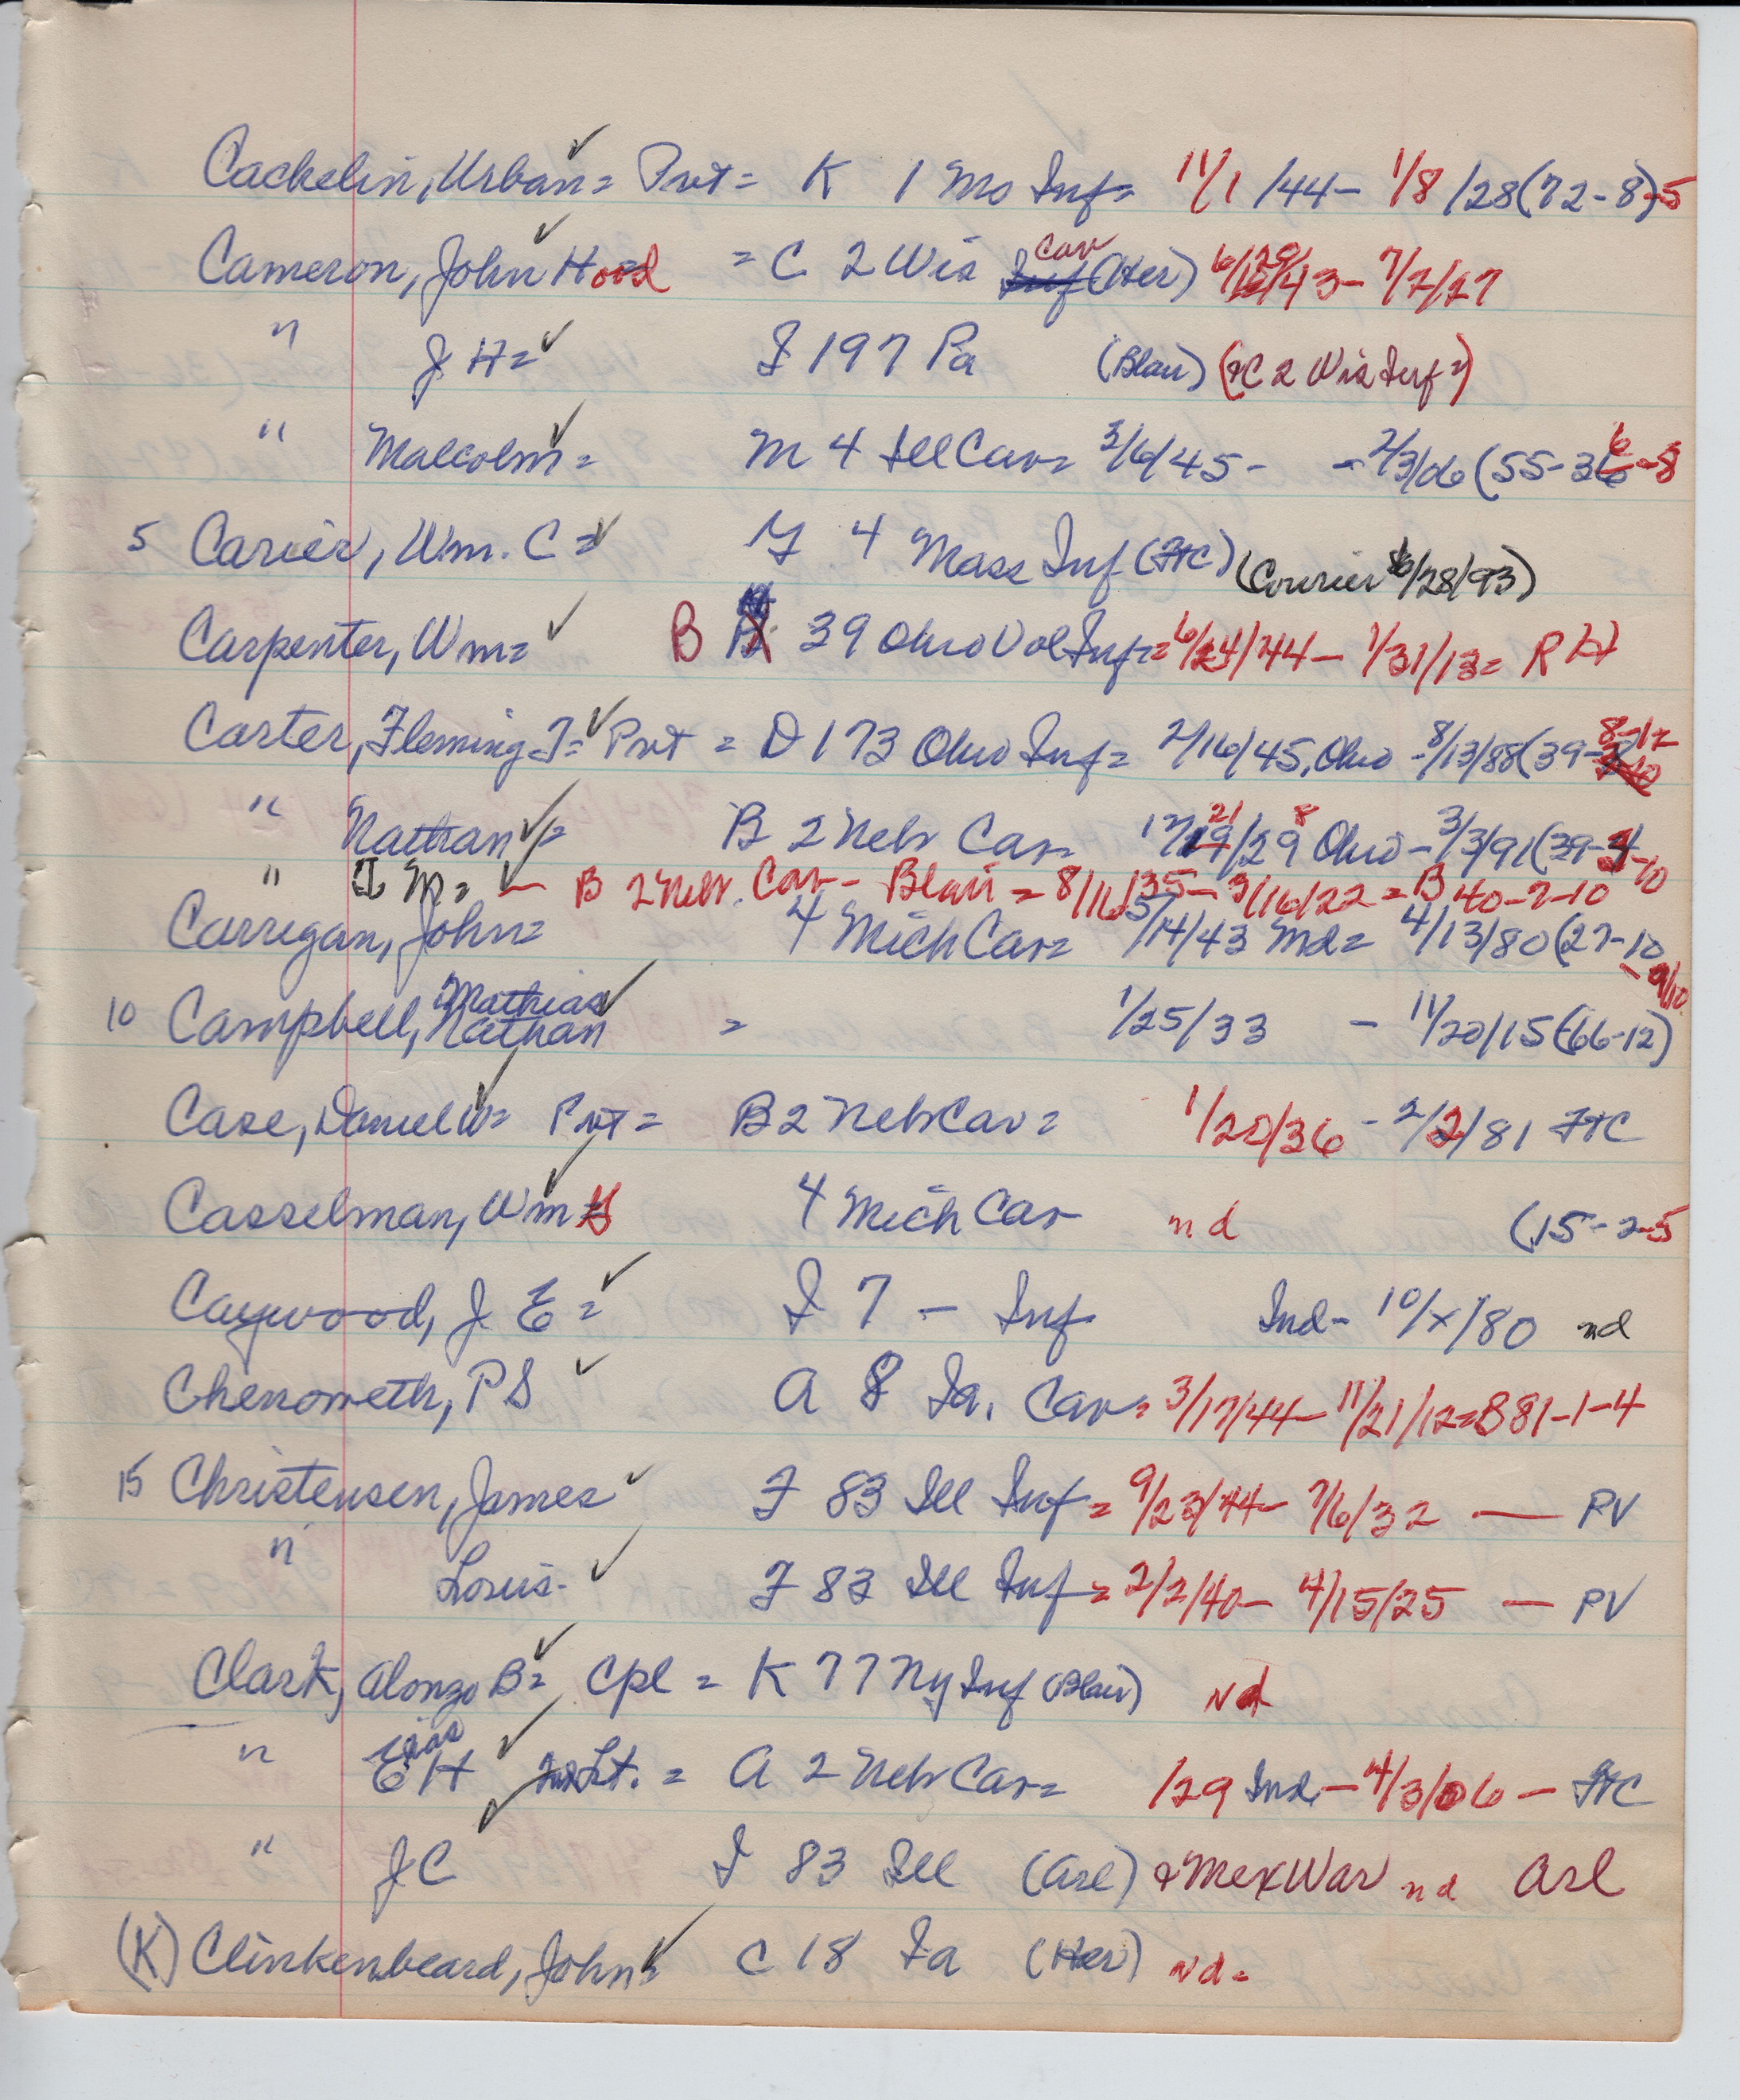 Cackelin, Urban = Pvt = K 1 Mo Inf = 11/1/44 - 1/8/28 (72-8)-5
Cameron, John Hood = C 2 Wis Inf Cav (Her) 6/29/43 - 7/7/27
" J H = I 197 Pa (Blair) (& C 2 Wis Inf =)
" Malcolm = M 4 Ill Cav = 3/6/45 - - 2/3/06 (55-36-8
5 Carier, Wm. C = G 4 Mass Inf (FtC) (Courier 6/28/93)
Carpenter, Wm = B 39 Ohio Vol Inf = 6/24/44 - 1/31/13 = R H
Carter, Fleming J = Pvt = D 173 Ohio Inf = 2/16/45, Ohio - 8/13/88 (39-8-12
" Nathan = B 2 Nebr Cav 12/21/28 Ohio - 3/3/91 (39-3-10
" I M = - B 2 Nebr. Cav - Blair = 8/16/35 - 3/16/22 = B 40-7-10
Carrigan, John = 4 Mich Cav = 5/14/43 Md = 4/13/80 (27-10 - 9/10
10 Campbell, Nathan Mathias = 1/25/33 - 11/20/15 (66-12)
Case, Daniel W = Pvt = B 2 Nebr Cav = 1/20/36 - 2/2/81 FtC
Casselman, Wm 4 Mich Cav nd (15-2-5
Caywood, J. E = I 7 - Inf Ind - 10/x/80 nd
Chenoweth, P S A 8 Ia. Cav = 3/17/44 - 11/21/12 = B 81-1-4
15 Christensen, James F 83 Ill Inf = 9/23/44 - 7/6/32 — PV
" Louis - F 83 Ill Inf = 2/2/40 - 4/15/25 — PV
Clark, Alonzo B = Cpl = K 77 NY Inf (Blair) Nd
" E H Lt. = A 2 Nebr Cav = /29 Ind - 4/3/06 - FtC
" J C I 83 Ill (Arl) & Mex War nd Arl
(K) Clinkenbeard, John = C 18 Ia (Her) Nd =